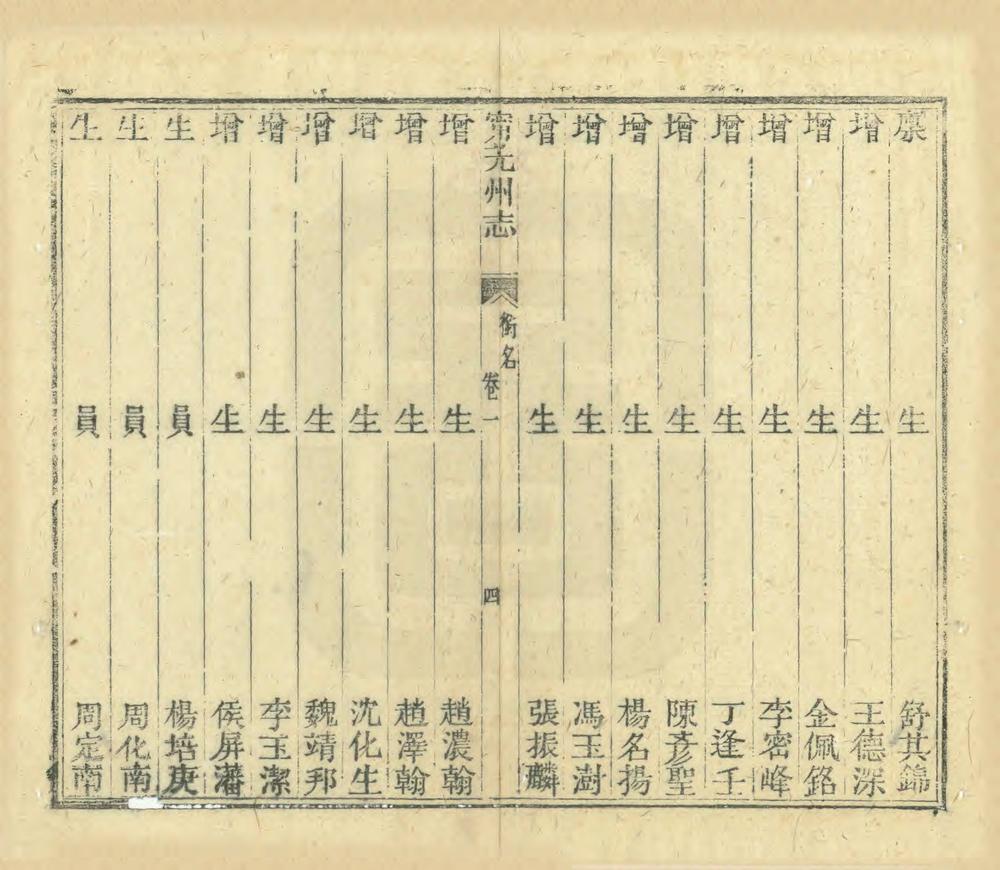 廩生舒其錦
增生王德深
增生金佩銘
增生李密峰
增生丁逢壬
增生陳彥聖
增生楊名揚
增生馮玉澍
增生張振麟
寗羌州志
銜名
卷一
四
增生趙濃翰
增生趙澤翰
增生沈化生
增生魏靖邦
增生李玉潔
增生侯屏藩
生員楊培庚
生員周化南
生員周定南